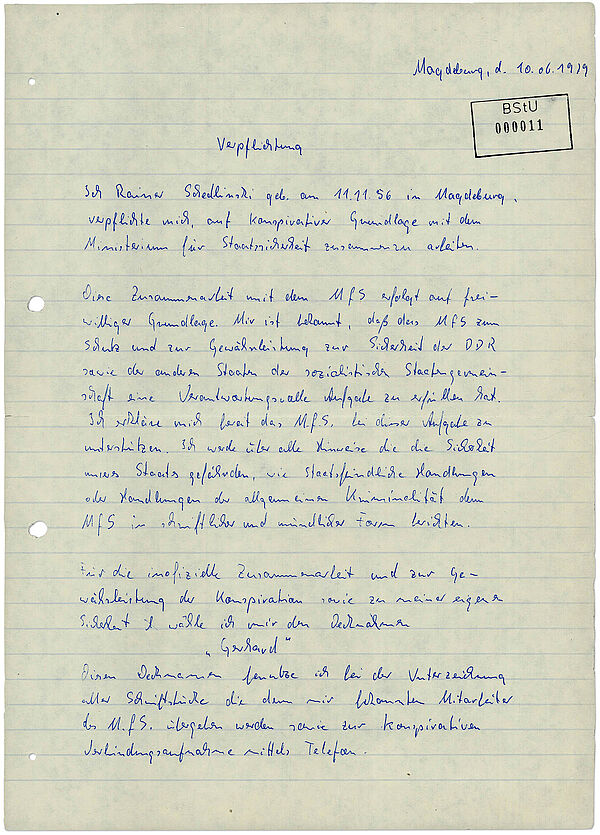 Magdeburg, d. 10.06.1979
BStU
000011
Verpflichtung
Ich Rainer Schedlinski geb. am 11.11.56 in Magdeburg,
verpflichte mich, auf konspirativer Grundlage mit dem
Ministerium für Staatssicherheit zusammenzu arbeiten.
Diese Zusammenarbeit mit dem MfS erfolgt auf frei-
williger Grundlage. Mir ist bekannt, daß das MfS zum
Schutz und zur Gewährleistung zur Sicherheit der DDR
sowie der anderen Staaten der sozialistischen Staatengemein-
schaft eine Verantwortungsvolle Aufgabe zu erfüllen hat.
Ich erkläre mich bereit das M.f.S. bei dieser Aufgabe zu
unterstützen. Ich werde über alle Hinweise die die Sicherheit
unseres Staats gefährden, wie Staatsfeindliche Handlungen
oder Handlungen der allgemeinen Kriminalität dem
MfS in schriftlicher und mündlicher Form berichten.
Für die inofizielle Zusammenarbeit und zur Ge-
währleistung der Konspiration sowie zu meiner eigenen
Sicherheit wähle ich mir den Decknahmen
„Gerhard"
Diesen Decknamen benutze ich bei der Unterzeichung
aller Schriftstücke die dem mir bekannten Mitarbeiter
des M.f.S. übergeben werden sowie zur konspirativen
Verbindungsaufnahme mittels Telefon.